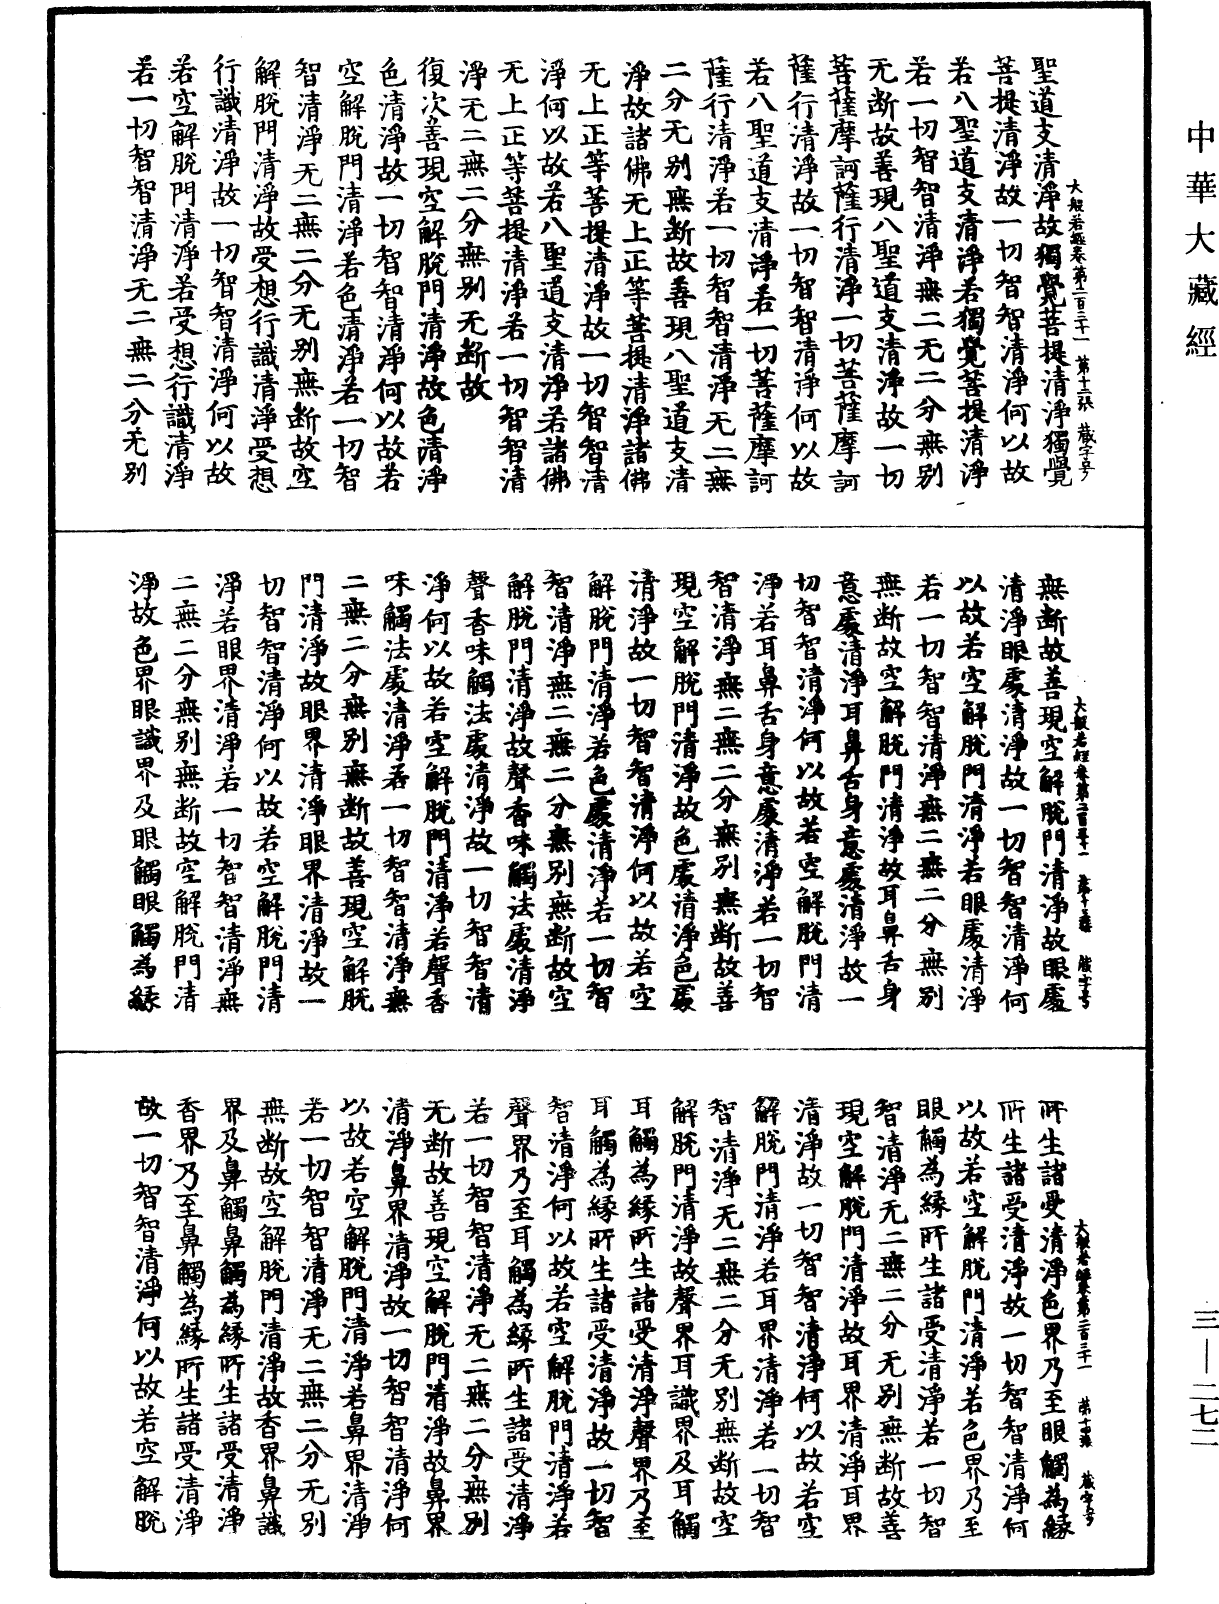 中華大藏經
大般若經卷第二百三十一 第十二張 藏字号
聖道支清淨故獨覺菩提清淨獨覺
菩提清淨故一切智智清淨何以故
若八聖道支清淨若獨覺菩提清淨
若一切智智清淨無二无二分無別
无断故善現八聖道支清淨故一切
菩薩摩訶薩行清淨一切菩薩摩訶
薩行清淨故一切智智清淨何以故
若八聖道支清淨若一切菩薩摩訶
薩行清淨若一切智智清淨无二無
二分无别無断故善現八聖道支清
淨故諸佛无上正等菩提清淨諸佛
无上正等菩提清淨故一切智智清
淨何以故若八聖道支清淨若諸佛
无上正等菩提清淨若一切智智清
淨无二無二分無别无断故
復次善現空解脫門清淨故色清淨
色清淨故一切智智清淨何以故若
空解脫門清淨若色清淨若一切智
智清淨无二無二分无别無断故空
解脫門清淨故受想行識清淨受想
行識清淨故一切智智清淨何以故
若空解脫門清淨若受想行識清淨
若一切智智清淨无二無二分无别
大般若經卷第二百三十一 第十三張 藏字号
無断故善現空解脫門清淨故眼處
清淨眼處清淨故一切智智清淨何
以故若空解脫門清淨若眼處清淨
若一切智智清淨無二無二分無別
無断故空解脫門清淨故耳鼻舌身
意處清淨耳鼻舌身意處清淨故一
切智智清淨何以故若空解脫門清
淨若耳鼻舌身意處清淨若一切智
智清淨無二無二分無别無断故善
現空解脫門清淨故色處清淨色處
清淨故一切智智清淨何以故若空
解脫門清淨若色處清淨若一切智
智清淨無二無二分無别無断故空
解脫門清淨故聲香味觸法處清淨
聲香味觸法處清淨故一切智智清
淨何以故若空解脫門清淨若聲香
味觸法處清淨若一切智智清淨無
二無二分無别無断故善現空解脫
門清淨故眼界清淨眼界清淨故一
切智智清淨何以故若空解脫門清
淨若眼界清淨若一切智智清淨無
二無二分無别無断故空解脫門清
淨故色界眼識界及眼觸眼觸為緣
大般若經卷第二百三十一 第十四張 藏字号
所生諸受清淨色界乃至眼觸為緣
所生諸受清淨故一切智智清淨何
以故若空解脫門清淨若色界乃至
眼觸為緣所生諸受清淨若一切智
智清淨无二無二分无别無断故善
現空解脫門清淨故耳界清淨耳界
清淨故一切智智清淨何以故若空
解脫門清淨若耳界清淨若一切智
智清淨无二無二分无别無断故空
解脫門清淨故聲界耳識界及耳觸
耳觸為緣所生諸受清淨聲界乃至
耳觸為緣所生諸受清淨故一切智
智清淨何以故若空解脫門清淨若
聲界乃至耳觸為緣所生諸受清淨
若一切智智清淨无二無二分無別
无断故善現空解脫門清淨故鼻界
清淨鼻界清淨故一切智智清淨何
以故若空解脫門清淨若鼻界清淨
若一切智智清淨无二無二分无别
無断故空解脫門清淨故香界鼻識
界及鼻觸鼻觸為緣所生諸受清淨
香界乃至鼻觸為緣所生諸受清淨
故一切智智清淨何以故若空解脫
三—二七二